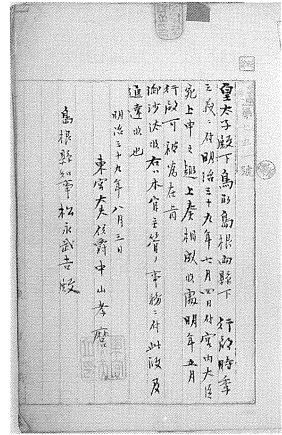 皇太子殿下鳥取島根両縣下行啓時季
之義ニ付明治三十九年七月四日付宮内大臣
宛上申之趣上奏相成候處明年五月
行啓可被為在旨
御沙汰候右ハ本官主管ノ事務ニ付此段及
通達候也
明治三十九年八月三日
東宮大夫侯爵中山孝麿
島根縣知事松永武吉殿